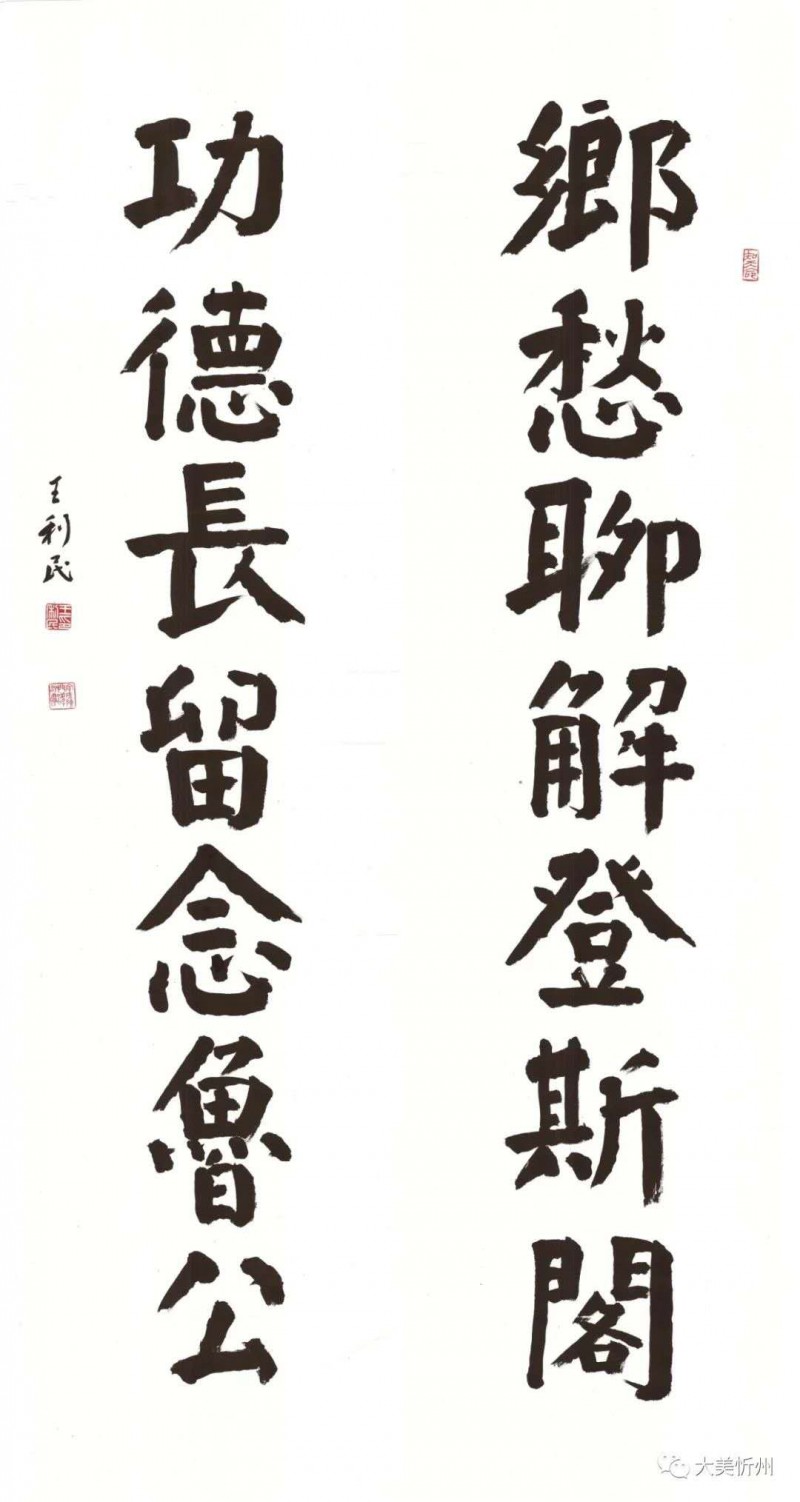 鄉愁聊解登斯閣
功德長留念魯公
王利民
大美忻州